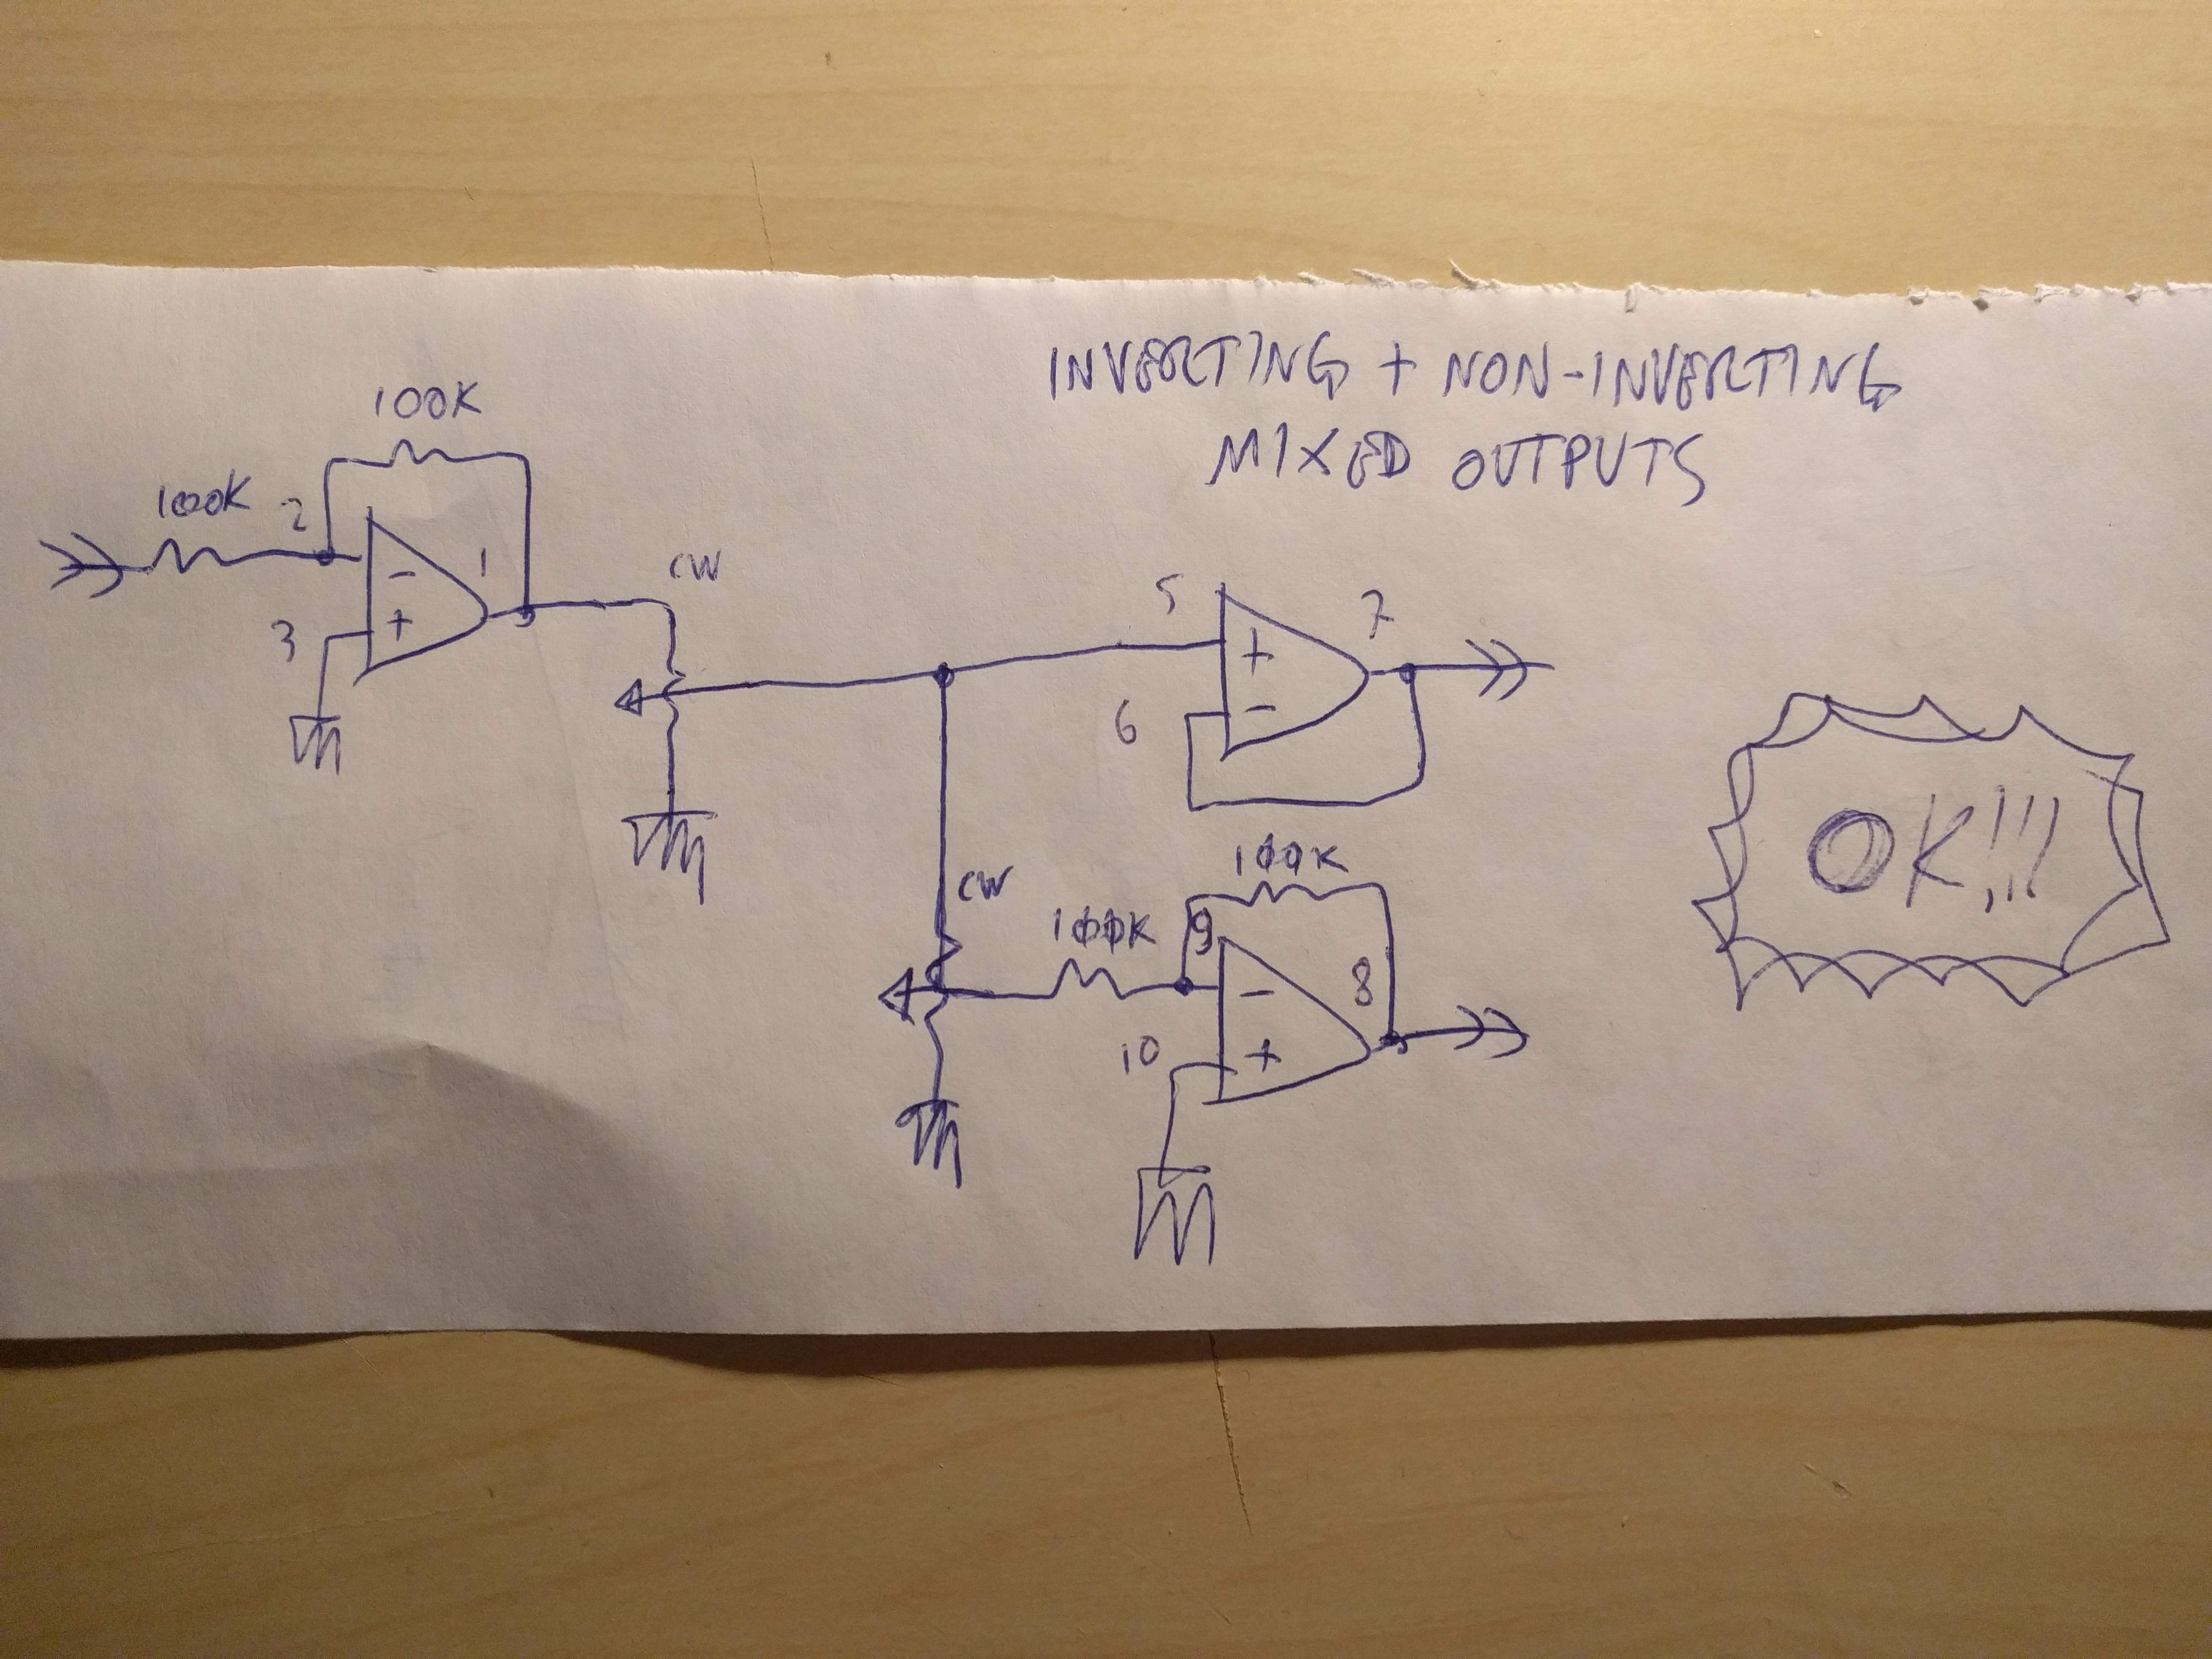 INVERTING + NON-INVERTING
MIXED OUTPUTS
100K
100K
2
-
1
3
+
CW
5
+
7
6
-
OK!!!
CW
100K
100K
9
-
8
10
+